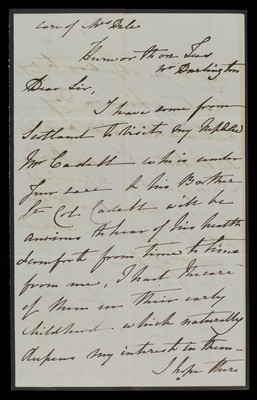 care of Mrs Dale
Hurworth on Tees
Nr Darlington
Dear Sir,
I have come from
Scotland to visit my Nephew
Mr Cadell who is under
your care & his Brother
Lt Col. Cadell will be
anxious to hear of his health
& comfort from time to time
from me, I had the care
of them in their early
childhood which naturally
deepens my interest in them—
I hope there